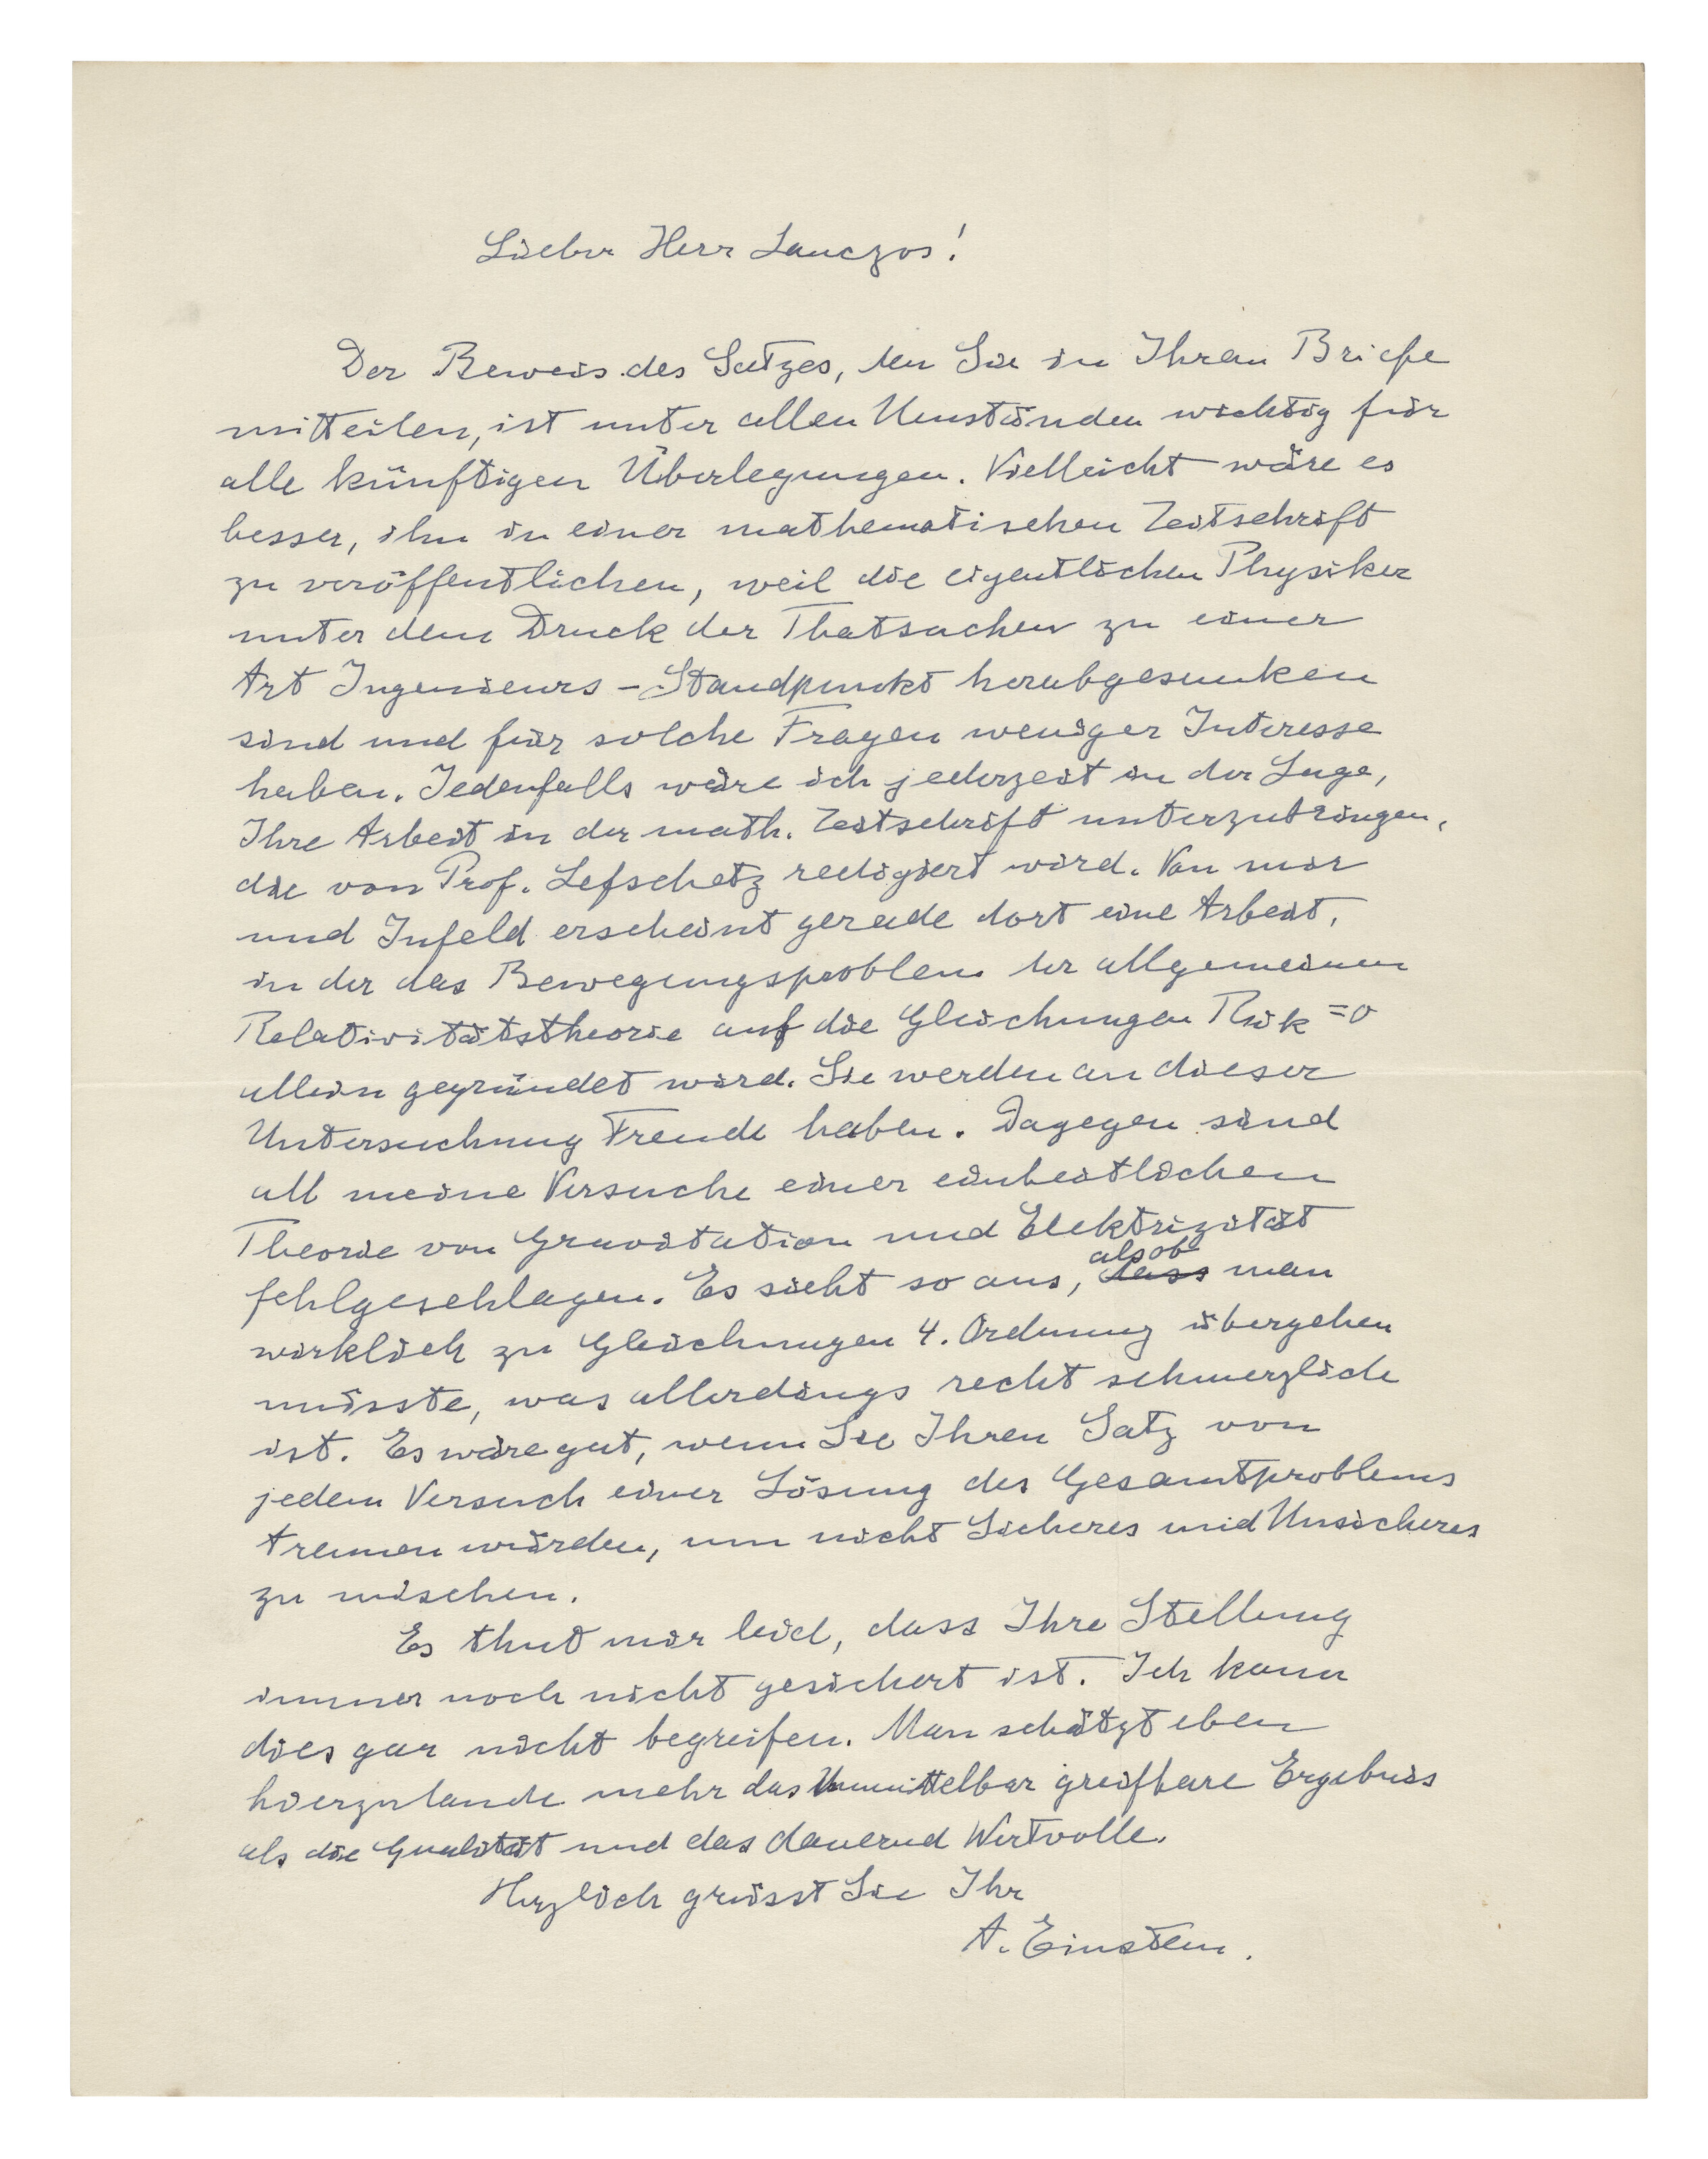 Lieber Herr Lanczos!
Der Beweis des Satzes, den Sie in Ihrem Briefe
mitteilen, ist unter allen Umständen wichtig für
alle künftigen Überlegungen. Vielleicht wäre es
besser, ihn in einer mathematischen Zeitschrift
zu veröffentlichen, weil die eigentlichen Physiker
unter dem Druck der Thatsachen zu einer
Art Ingenieurs-Standpunkt herabgesunken
sind und für solche Fragen weniger Interesse
haben. Jedenfalls wäre ich jederzeit in der Lage,
Ihre Arbeit in der math. Zeitschrift unterzubringen,
die von Prof. Lefschetz redigiert wird. Von mir
und Infeld erscheint gerade dort eine Arbeit,
in der das Bewegungsproblem der allgemeinen
Relativitätstheorie auf die Gleichungen Rik = 0
allein gegründet wird. Sie werden an dieser
Untersuchung Freude haben. Dagegen sind
all meine Versuche einer einheitlichen
Theorie von Gravitation und Elektrizität
fehlgeschlagen. Es sieht so aus, dass als ob man
wirklich zu Gleichungen 4. Ordnung übergehen
müsste, was allerdings recht schmerzlich
ist. Es wäre gut, wenn Sie Ihren Satz von
jedem Versuch einer Lösung des Gesamtproblems
trennen würden, um nicht Sicheres und Unsicheres
zu mischen.
Es thut mir leid, dass Ihre Stellung
immer noch nicht gesichert ist. Ich kann
dies gar nicht begreifen. Man schätzt eben
hierzulande mehr das Unmittelbar greifbare Ergebnis
als die Qualität und das dauernd Wertvolle.
Herzlich grüsst Sie Ihr
A. Einstein.